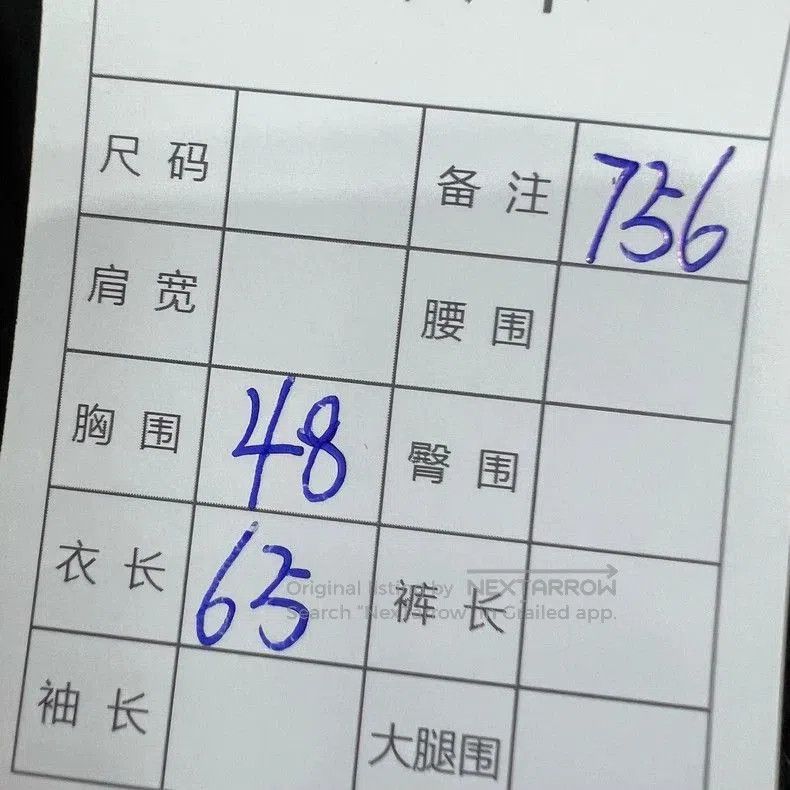 尺码 备注 756
肩宽 腰围
胸围 48 臀围
衣长 65 裤长
Original listing by NEXTARROW
Search "Nextarrow" in Grailed app.
袖长 大腿围